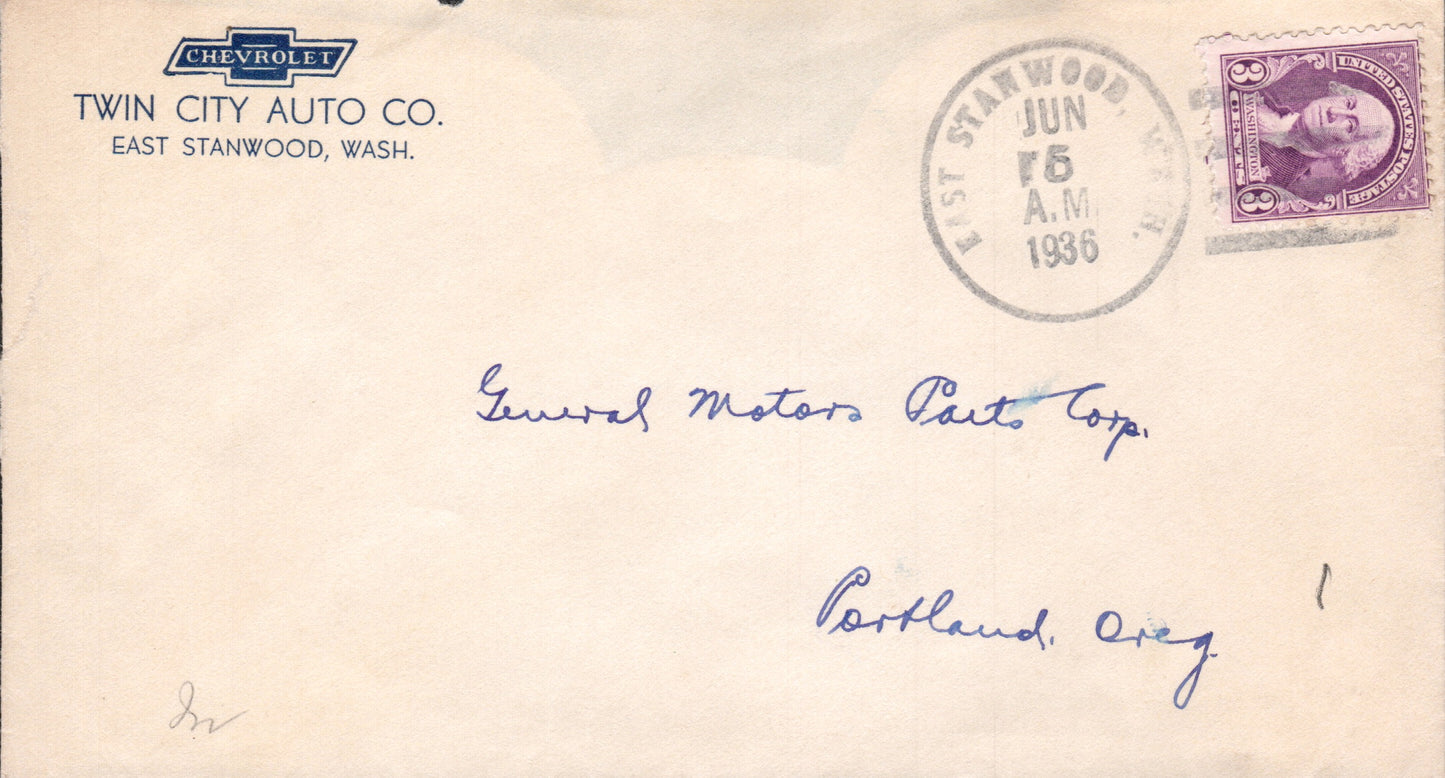 CHEVROLET
TWIN CITY AUTO CO.
EAST STANWOOD, WASH.
EAST STANWOOD, WASH.
JUN
5
A.M.
1936
UNITED STATES POSTAGE
3 CENTS 3
WASHINGTON
General Motors Parts Corp.
Portland, Oreg.